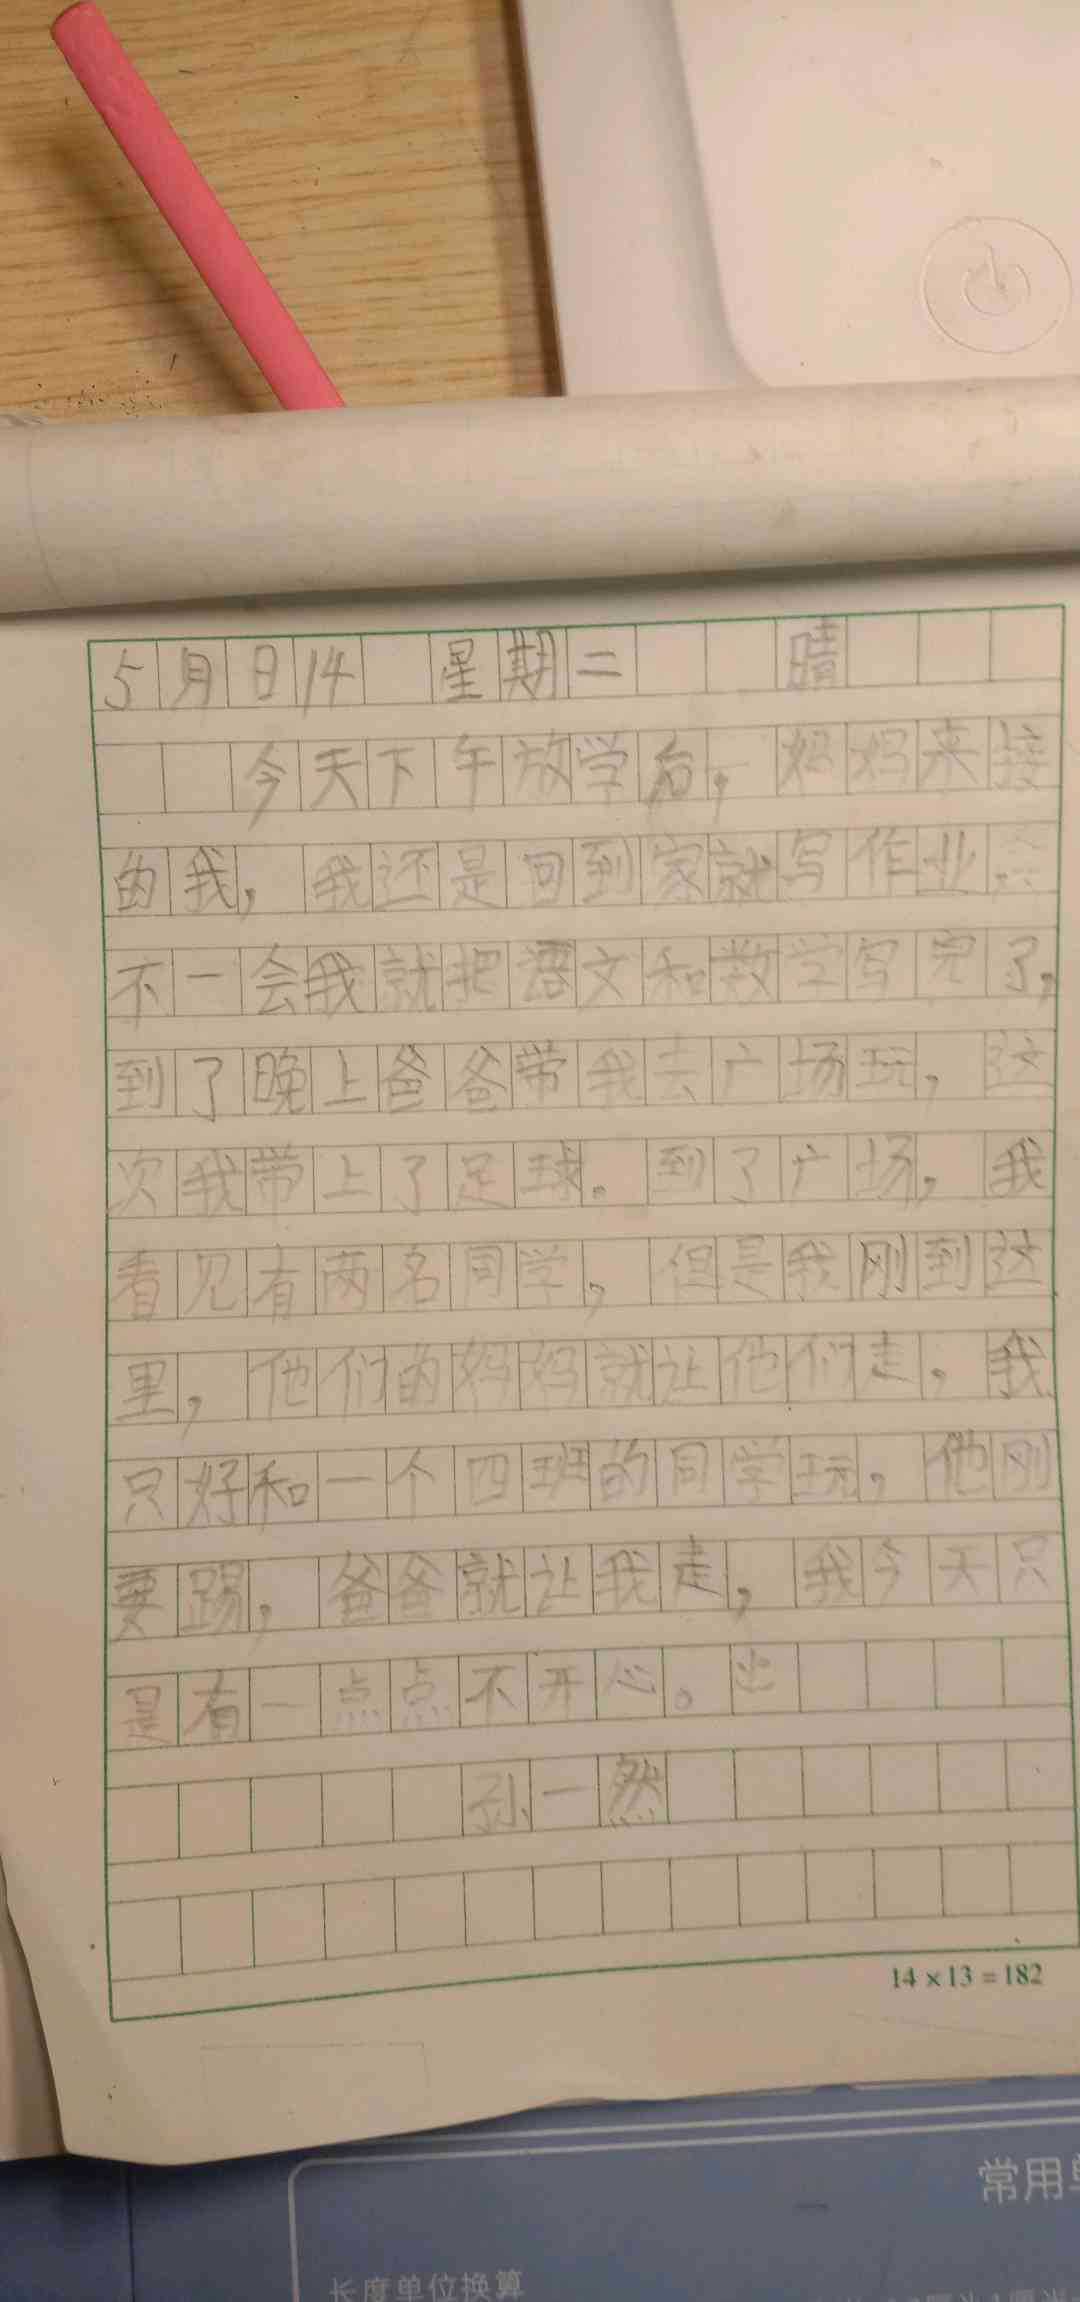 5月日14 星期二 晴
今天下午放学后，妈妈来接
的我，我还是回到家就写作业，
不一会我就把语文和数学写完了，
到了晚上爸爸带我去广场玩，这
次我带上了足球。到了广场，我
看见有两名同学，但是我刚到这
里，他们的妈妈就让他们走，我
只好和一个四班的同学玩，他刚
要踢，爸爸就让我走，我今天只
是有一点点不开心。
孙一然
14×13=182
常用
长度单位换算